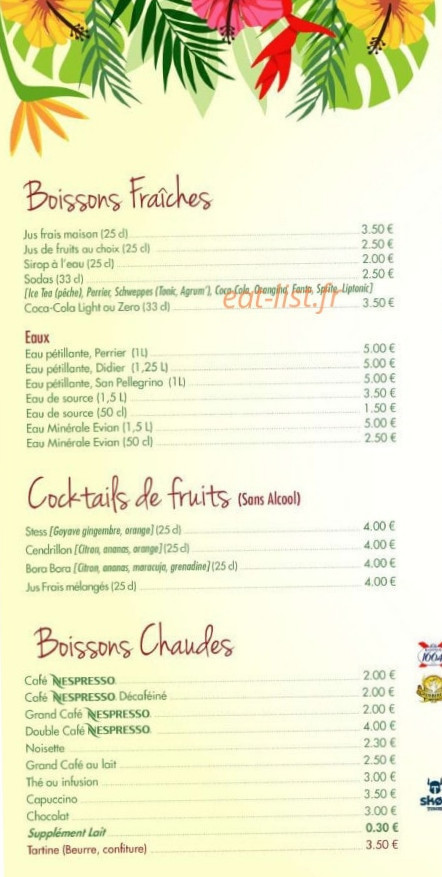 Boissons Fraîches
Jus frais maison (25 cl) 3.50 €
Jus de fruits au choix (25 cl) 2.50 €
Sirop à l'eau (25 cl) 2.00 €
Sodas (33 cl) 2.50 €
[Ice Tea (pêche), Perrier, Schweppes (Tonic, Agrum'), Coca-Cola, Orangina, Fanta, Sprite, Liptonic]
eat-list.fr
Coca-Cola Light ou Zero (33 cl) 3.50 €
Eaux
Eau pétillante, Perrier (1L) 5.00 €
Eau pétillante, Didier (1,25 L) 5.00 €
Eau pétillante, San Pellegrino (1L) 5.00 €
Eau de source (1,5 L) 3.50 €
Eau de source (50 cl) 1.50 €
Eau Minérale Evian (1,5 L) 5.00 €
Eau Minérale Evian (50 cl) 2.50 €
Cocktails de fruits (Sans Alcool)
Stess [Goyave gingembre, orange] (25 cl) 4.00 €
Cendrillon [Citron, ananas, orange] (25 cl) 4.00 €
Bora Bora [Citron, ananas, maracuja, grenadine] (25 cl) 4.00 €
Jus Frais mélangés (25 cl) 4.00 €
Boissons Chaudes
1664
Café NESPRESSO. 2.00 €
Café NESPRESSO. Décaféiné 2.00 €
Grand Café NESPRESSO. 2.00 €
Double Café NESPRESSO. 4.00 €
Noisette 2.30 €
Grand Café au lait 2.50 €
Thé ou infusion 3.00 €
Capuccino 3.50 €
Chocolat 3.00 €
Supplément Lait 0.30 €
Tartine (Beurre, confiture) 3.50 €